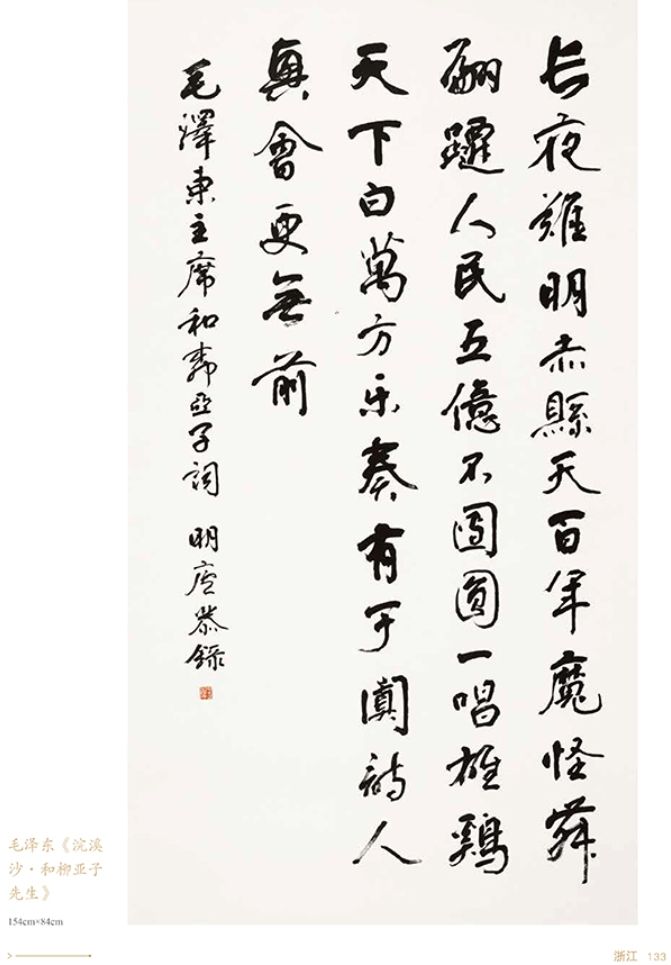 长夜難明赤縣天百年魔怪舞
翩躚人民五億不團圓一唱雄鷄
天下白萬方乐奏有于闐詩人
興會更無前
毛澤東主席和柳亞子詞 明恭錄
毛泽东《浣溪
沙·和柳亚子
先生》
154cm×84cm
浙江 133